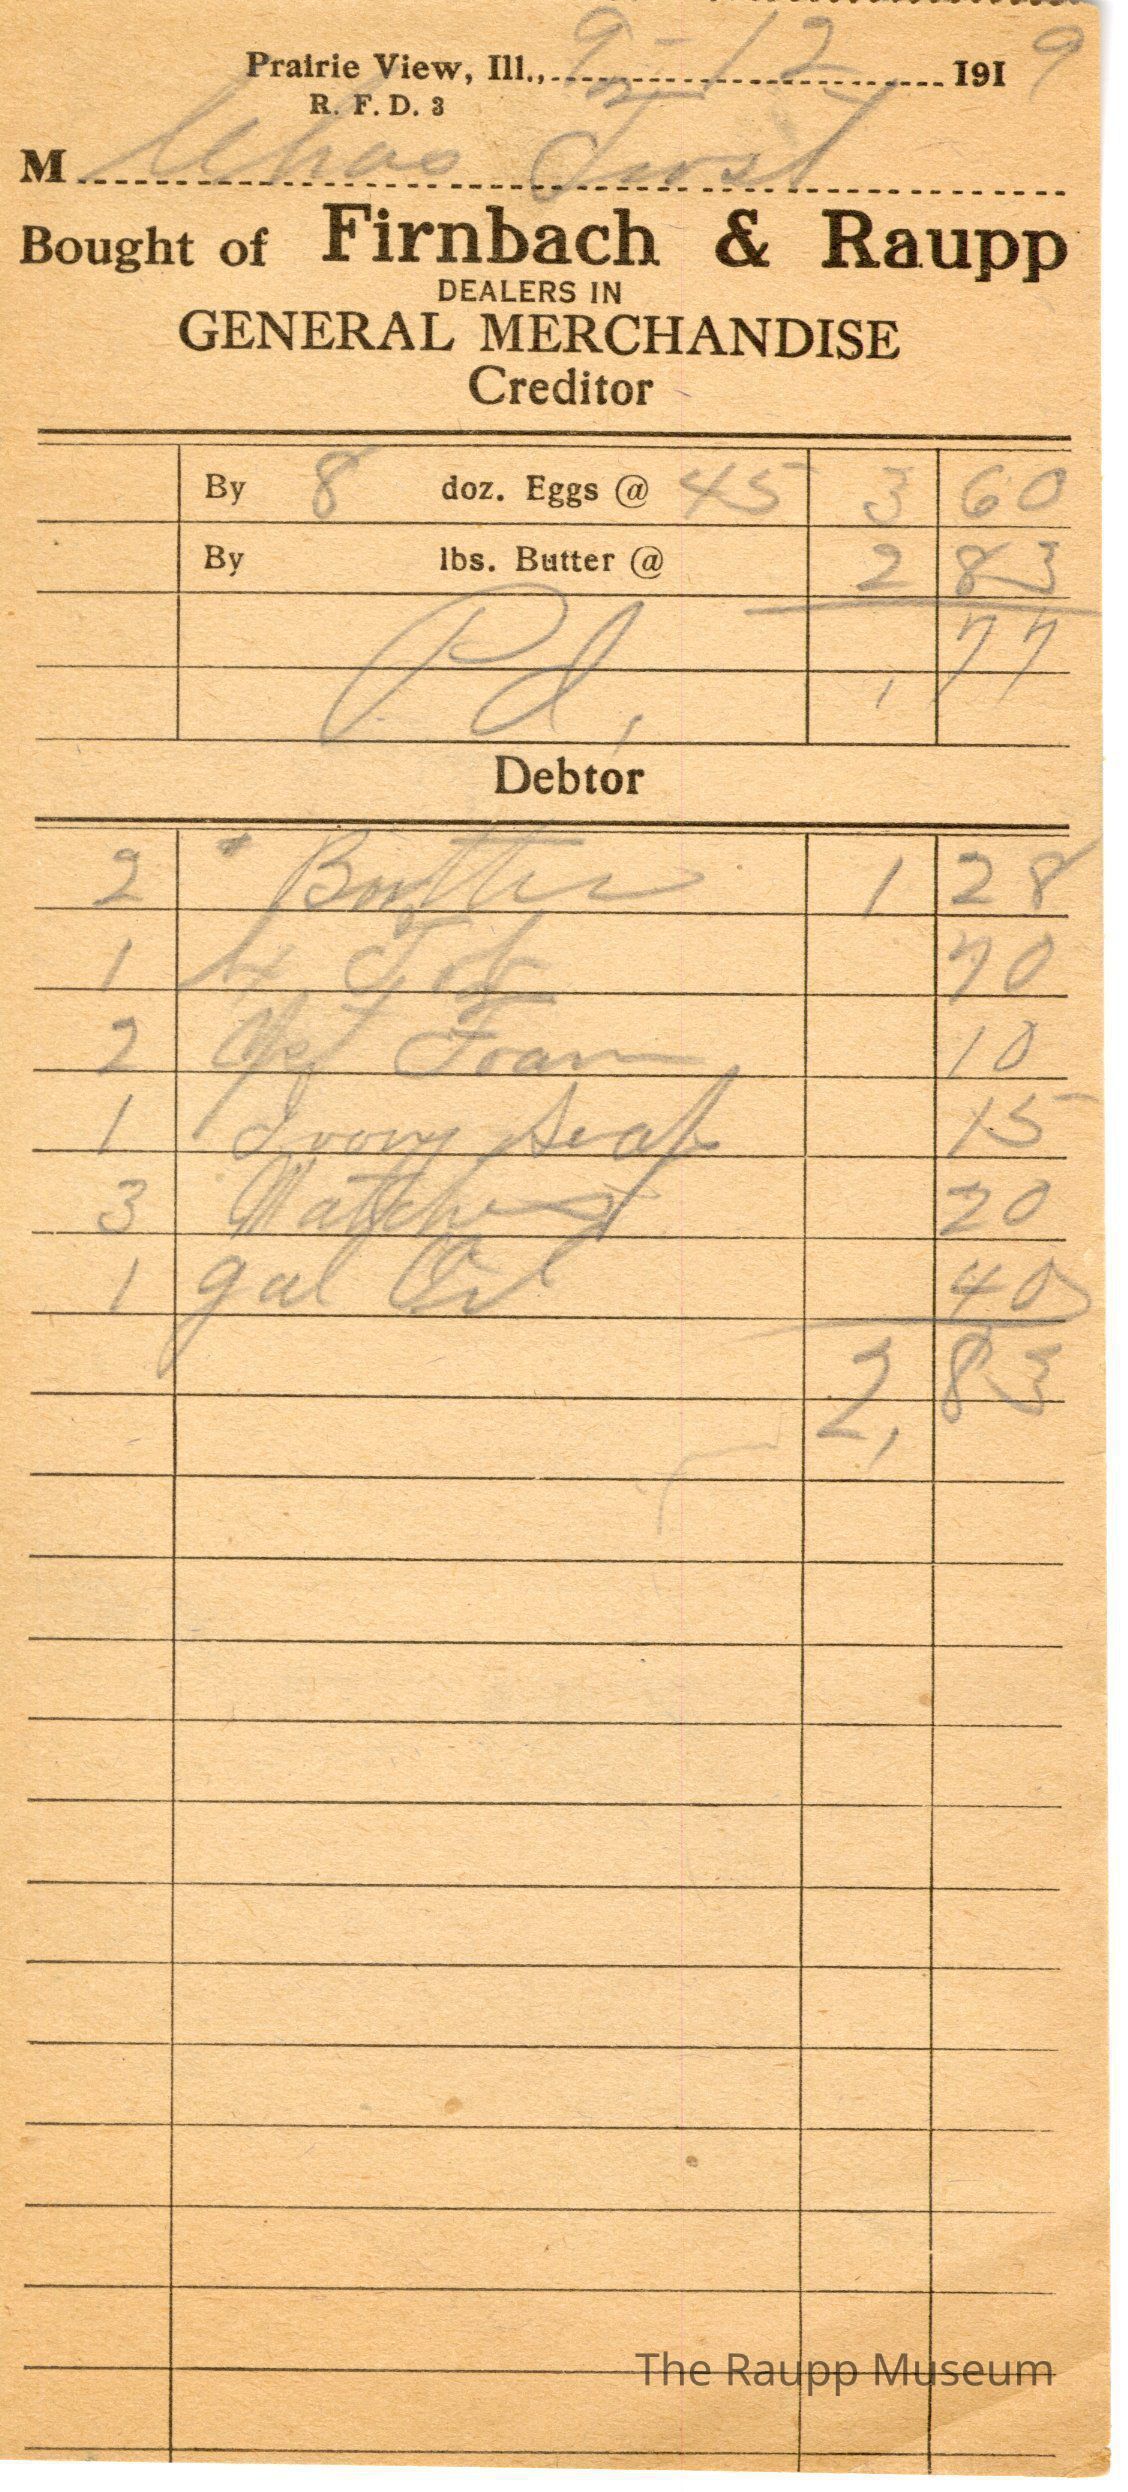 Prairie View, Ill., 9-12 1919
R. F. D. 3
M Chas Trost
Bought of Firnbach & Raupp
DEALERS IN
GENERAL MERCHANDISE
Creditor
By 8 doz. Eggs @ 45 3 60
By lbs. Butter @ 2 83
Pd, , 77
Debtor
2 " Butter 1 28
1 bx Tob 70
2 Foam 10
1 Ivory Soap 15
3 Matches 20
1 gal Oil 40
2,83
The Raupp Museum